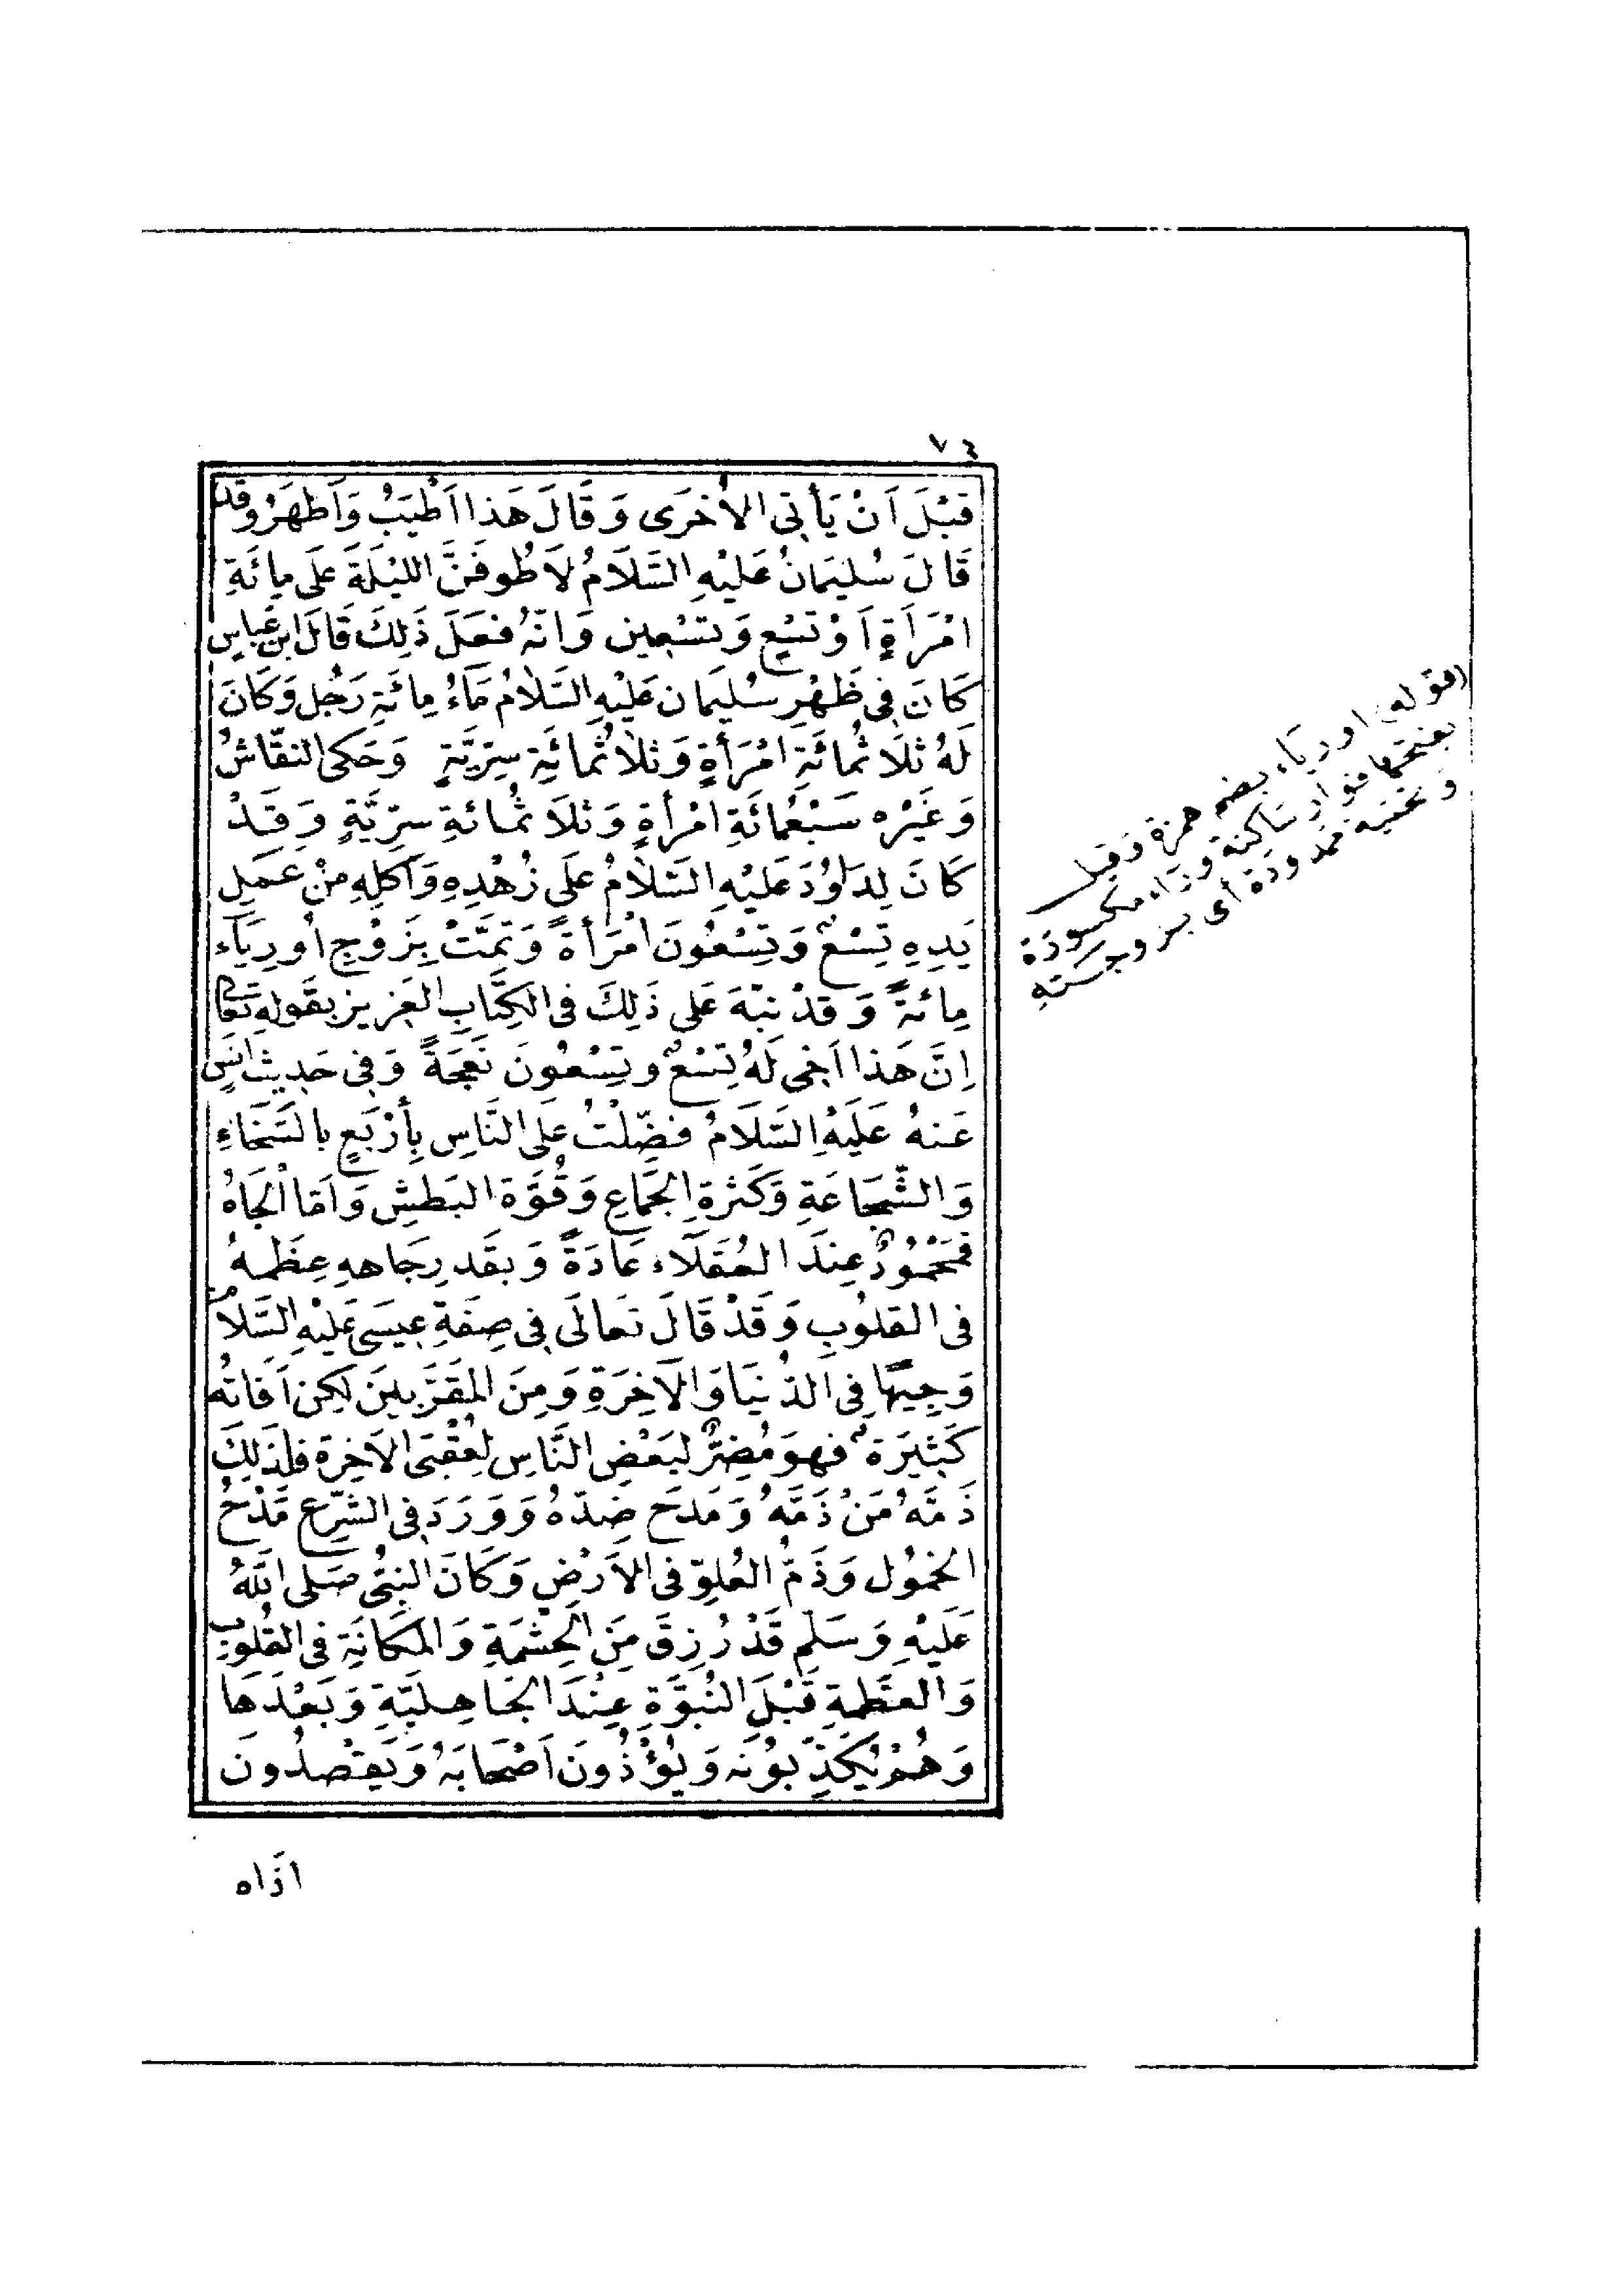 ٧٤
قَبْلَ اَنْ يَأْتِىَ الاُخْرَى وَقَالَ هَذَا اَطْيَبُ وَاَطْهَرُ وَقَدْ
قَالَ سُلَيْمَانُ عَلَيْهِ السَّلَامُ لَاَطُوفَنَّ اللَّيْلَةَ عَلَى مِائَةِ
امْرَأَةٍ اَوْ تِسْعٍ وَتِسْعِين وَانّهُ فَعَلَ ذَلِكَ قَالَ ابن عَبَّاسٍ
كَانَ فِى ظَهْرِ سُلَيْمَان عَلَيْهِ السَّلَامُ مَاءُ مِائَةِ رَجُلٍ وَكَانَ
لَهُ ثَلَاثُمائَةِ امْرَأَةٍ وَثَلَاثُمائَةِ سِرِّيَّةٍ وَحَكى النقَّاشُ
وَغَيْرُه سَبْعُمائَةِ امْرأةٍ وَثَلَاثُمائَةِ سِرِّيَّةٍ وَقَدْ
كَانَ لِدَاوُدَ عَلَيْهِ السَّلَامُ عَلَى زُهْدِهِ وَاَكْلِهِ مِنْ عَمَلِ
يَدِهِ تِسْعٌ وَتِسْعُونَ امْرَأَةً وَتَمَّتْ بِزَوْجِ اُورِيَآء
مِائَةً وَقَدْ نَبّهَ عَلَى ذَلِكَ فى الكِتَابِ العَزِيزِ بقَولِهِ تَعَالَى
اِنَّ هَذا اَخِى لَهُ تِسْعٌ وتِسْعُونَ نَعْجَةً وَفِى حَدِيث اَنَسٍ
عَنهُ عَلَيْهِ السَّلَامُ فُضِّلْتُ عَلَى النَّاسِ بِأَرْبَعٍ بالسَّخَاءِ
وَالشَّجَاعَةِ وَكَثرَةِ الجِمَاعِ وَقُوَّةِ البَطْشِ وَاَمّا الْجَاهُ
فَمَحْمُودٌ عِنْدَ العُقَلَاء عَادَةً وَبقَدرِ جَاهِهِ عِظَمُهُ
فى القُلُوبِ وَقَدْ قَالَ تَعَالَى فِى صِفَةِ عِيسَى عَلَيْهِ السَّلَامُ
وَجِيهًا فِى الدُّنْيَا وَالآخِرَةِ وَمِنَ المُقَرَّبِينَ لَكِن اَفَاتُه
كَثِيرَةٌ فَهوَ مُضِرٌّ لِبَعْضِ النَّاسِ لِعُقْبَى الاَخِرَةِ فَلِذَلِكَ
ذَمَّهُ مَنْ ذَمَّهُ وَمَدَحَ ضِدَّهُ وَوَرَدَ فِى الشَّرْعِ مَدْحُ
الخمُولِ وَذَمُّ العُلُوِّ فى الاَرْضِ وَكَانَ النَّبِىُّ صَلَى اللَّهُ
عَلَيْهِ وَسَلّمَ قَدْ رُزِقَ مِنَ الحِشْمَةِ وَالمَكَانَةِ فى القُلُوبِ
وَالعَظَمةِ قَبْلَ النُّبُوَّةِ عِنْدَ الجَاهِلِيَّةِ وَبَعْدَهَا
وَهُمْ يُكَذِّبُونَه وَيُؤْذُونَ اَصْحَابَهُ وَيَقْصِدُونَ
اَذَاه
(قوله) اورياء بضم همزة وقيل
بفتحها فواو ساكنة وراء مكسورة
وتحتيه ممدودة أى بزوجته